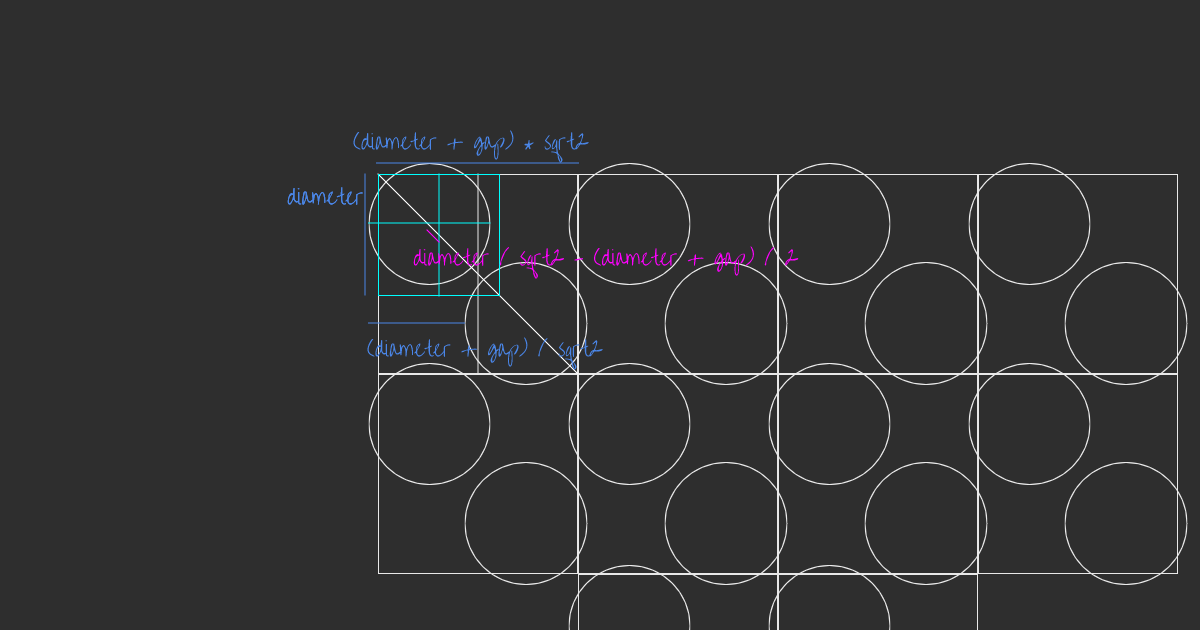 (diameter + gap) * sqrt2
diameter
diameter / sqrt2 - (diameter + gap) / 2
(diameter + gap) / sqrt2